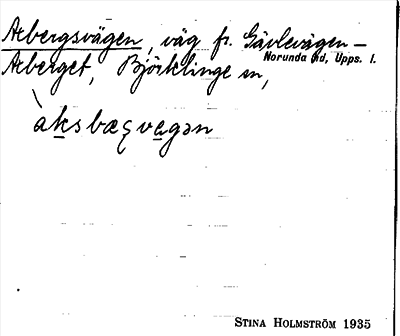 Axbergsvägen, väg fr. Gävlevägen –
Axberget, Björklinge sn,
Norunda hd, Upps. l.
aksbæçvægən
STINA HOLMSTRÖM 1935